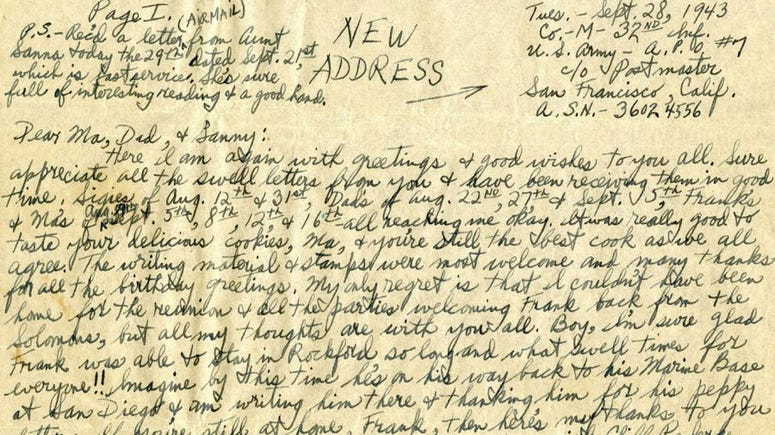 Page I.
(AIRMAIL)
P.S. - Rec'd a letter from Aunt
Sanna today the 29th dated Sept. 21,st
which is fast service. She's sure
full of interesting reading & a good hand.
NEW
ADDRESS
Tues. - Sept. 28, 1943
Co. - M - 32ND Inf.
U.S. Army - A.P.O. #7
c/o Postmaster
San Francisco, Calif.
A.S.N. - 36024556
Dear Ma, Dad, & Sanny:
Here I am again with greetings & good wishes to you all. Sure
appreciate all the swell letters from you & have been receiving them in good
time. Signes of Aug. 12th & 31st, Dads of Aug. 22ND, 27th & Sept. 5th, Franks
& Ma's Sept. 5th, 8th, 12th, & 16th - all reaching me okay. It was really good to
taste your delicious cookies, Ma, & you're still the best cook as we all
agree. The writing material & stamps were most welcome and many thanks
for all the birthday greetings. My only regret is that I couldn't have been
home for the reunion & all the parties welcoming Frank back from the
Solomons, but all my thoughts are with you all. Boy, I'm sure glad
Frank was able to stay in Rockford so long and what swell times for
everyone!! Imagine by this time he's on his way back to his Marine Base
at San Diego & am writing him there & thanking him for his peppy
you're still at home, Frank, then here's my thanks to you